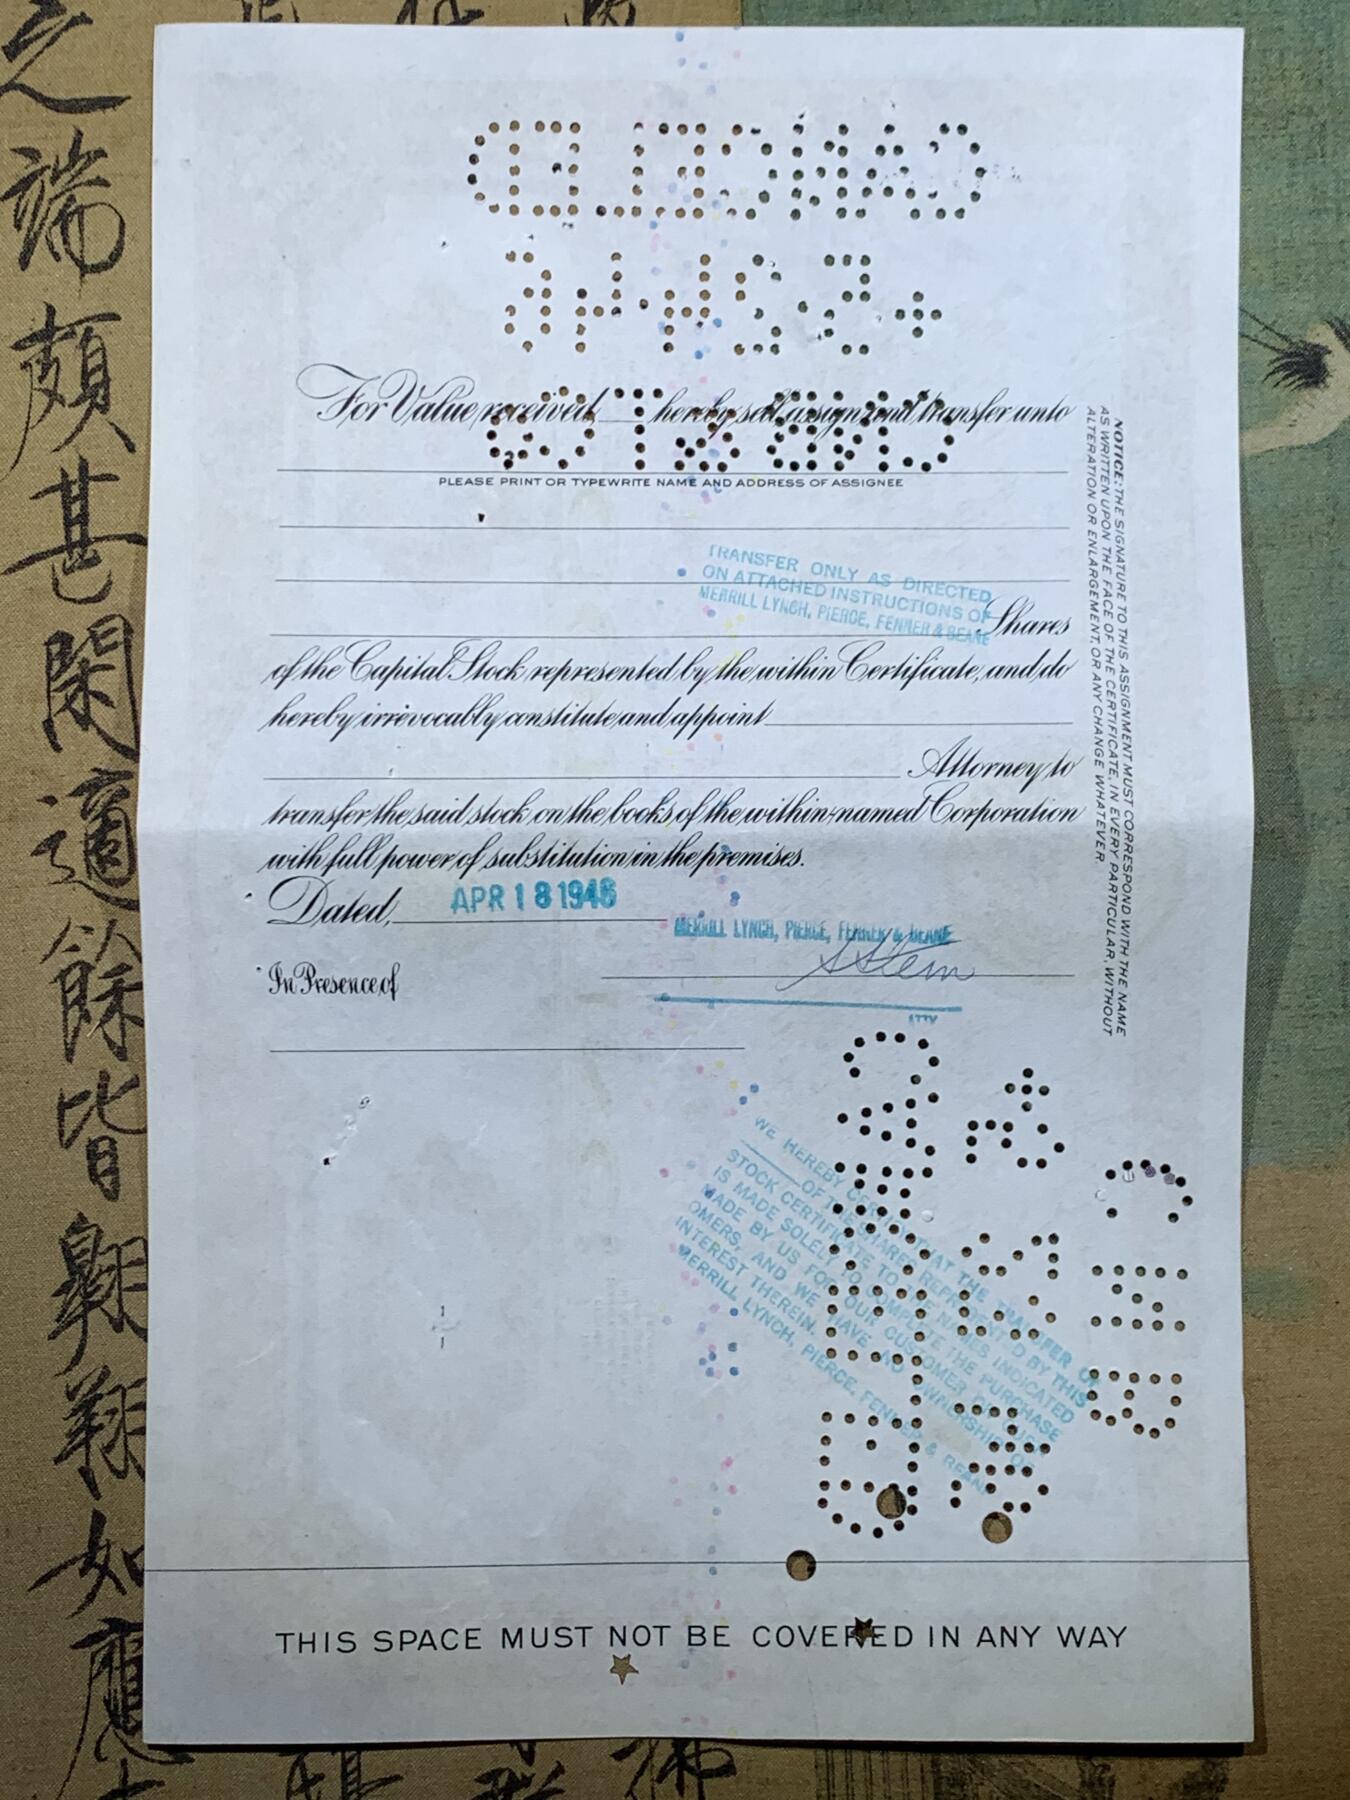 CANCELLED
+5·24·46
CHB & T CO
For Value received, hereby sell, assign and transfer unto
PLEASE PRINT OR TYPEWRITE NAME AND ADDRESS OF ASSIGNEE
TRANSFER ONLY AS DIRECTED
ON ATTACHED INSTRUCTIONS OF
MERRILL LYNCH, PIERCE, FENNER & BEANE
Shares
of the Capital Stock represented by the within Certificate, and do
hereby irrevocably constitute and appoint
Attorney to
transfer the said stock on the books of the within-named Corporation
with full power of substitution in the premises.
Dated, APR 18 1946
MERRILL LYNCH, PIERCE, FENNER & BEANE
In Presence of
ATTY
NOTICE: THE SIGNATURE TO THIS ASSIGNMENT MUST CORRESPOND WITH THE NAME
AS WRITTEN UPON THE FACE OF THE CERTIFICATE, IN EVERY PARTICULAR, WITHOUT
ALTERATION OR ENLARGEMENT, OR ANY CHANGE WHATEVER.
WE HEREBY CERTIFY THAT THE TRANSFER OF
OF THE SHARES REPRESENTED BY THIS
STOCK CERTIFICATE TO THE NAMES INDICATED
IS MADE SOLELY TO COMPLETE THE PURCHASE
MADE BY US FOR OUR CUSTOMER OR CUST-
OMERS, AND WE HAVE NO OWNERSHIP OR
INTEREST THEREIN.
MERRILL LYNCH, PIERCE, FENNER & BEANE
CANCELLED
THIS SPACE MUST NOT BE COVERED IN ANY WAY
之端頗甚閑適餘皆翱翔如應